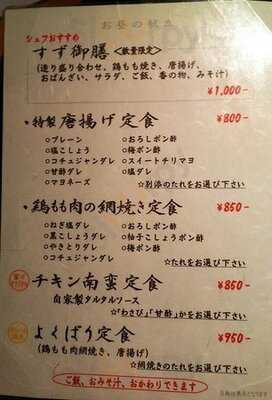 お昼の献立
シェフおすすめ
すず御膳 <数量限定>
(造り盛り合わせ、鶏もも焼き、唐揚げ、
おばんざい、サラダ、ご飯、香の物、みそ汁)
¥1,000-
特製 唐揚げ定食 ¥800-
○プレーン ○おろしポン酢
○塩こしょう ○梅ポン酢
○コチュジャンダレ ○スイートチリマヨ
○甘酢ダレ ○塩ダレ
○マヨネーズ ☆別添のたれをお選び下さい
鶏もも肉の網焼き定食 ¥850-
○ねぎ塩ダレ ○おろしポン酢
○黒こしょうダレ ○柚子こしょうポン酢
○やきとりダレ ○梅ポン酢
○コチュジャンダレ ☆たれをお選び下さい
チキン南蛮定食 ¥850-
自家製タルタルソース
☆「わさび」「甘酢」かをお選び下さい
よくばり定食 ¥950-
(鶏もも肉網焼き、唐揚げ)
☆網焼きのたれをお選び下さい
ご飯、おみそ汁、おかわりできます